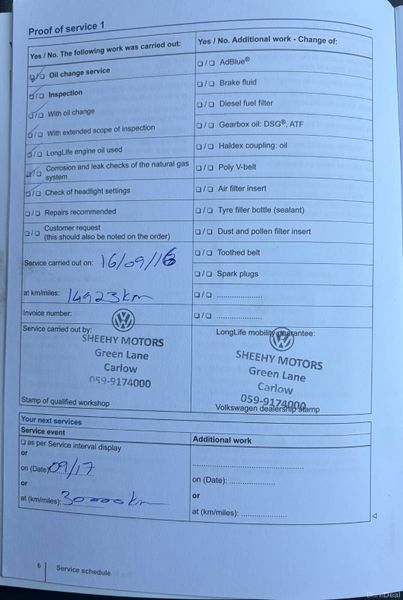 Proof of service 1
Yes / No. The following work was carried out:
Yes / No. Additional work - Change of:
Oil change service
AdBlue®
Inspection
Brake fluid
With oil change
Diesel fuel filter
With extended scope of inspection
Gearbox oil: DSG®, ATF
LongLife engine oil used
Haldex coupling: oil
Corrosion and leak checks of the natural gas
system
Poly V-belt
Check of headlight settings
Air filter insert
Repairs recommended
Tyre filler bottle (sealant)
Customer request
(this should also be noted on the order)
Dust and pollen filter insert
Service carried out on: 16/09/16
Toothed belt
Spark plugs
at km/miles: 14923km
Invoice number:
Service carried out by:
LongLife mobility guarantee:
SHEEHY MOTORS
Green Lane
Carlow
059-9174000
SHEEHY MOTORS
Green Lane
Carlow
059-9174000
Stamp of qualified workshop
Volkswagen dealership stamp
Your next services
Service event
Additional work
as per Service interval display
or
on (Date) 09/17
on (Date):
or
or
at (km/miles): 30000km
at (km/miles):
6
Service schedule
DoneDeal